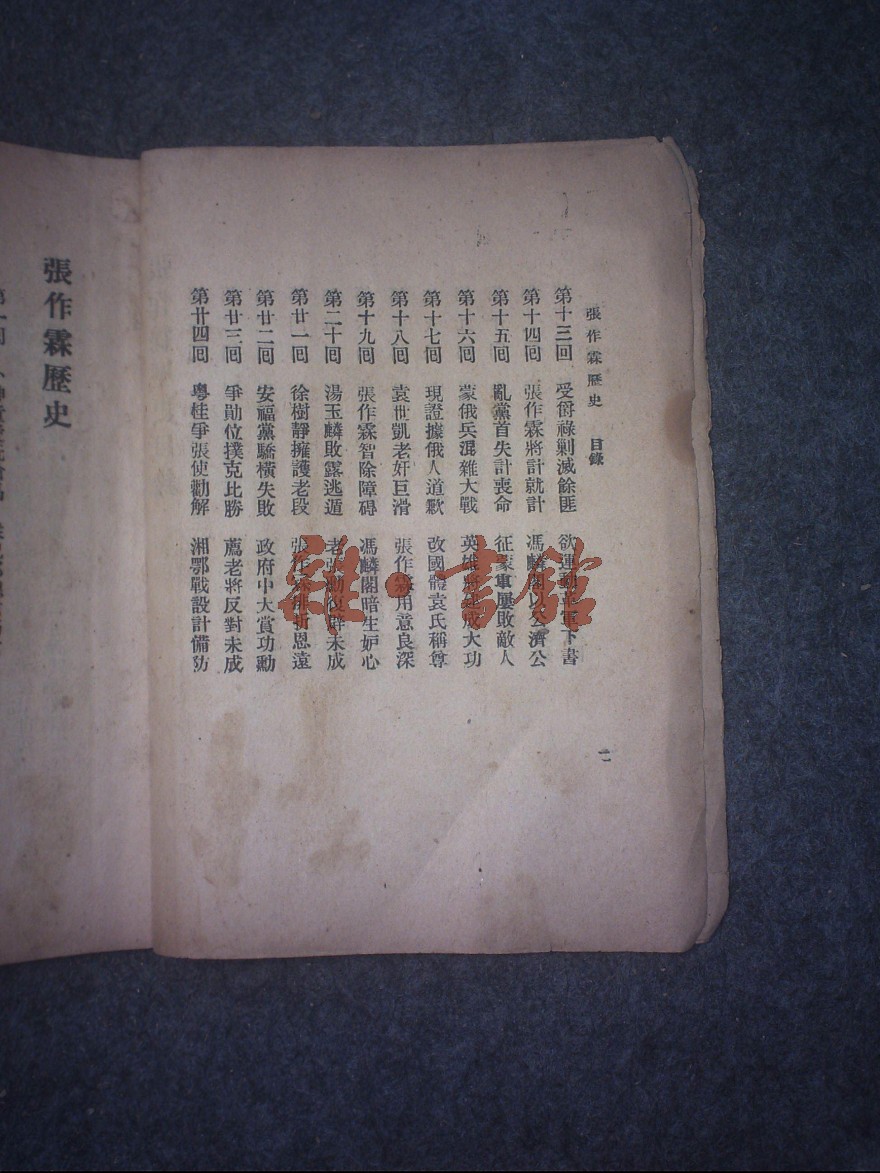 張作霖歷史　目錄
第十三回　受爵祿剿滅餘匪　欲運動華軍下書
第十四回　張作霖將計就計　馮麟閣以公濟公
第十五回　亂黨首失計喪命　征蒙軍屢敗敵人
第十六回　蒙俄兵混雜大戰　英雄將建成大功
第十七回　現證據俄人道歉　改國體袁氏稱尊
第十八回　袁世凱老奸巨滑　張作霖用意良深
第十九回　張作霖智除障碍　馮麟閣暗生妒心
第二十回　湯玉麟敗露逃遁　老張勳復辟未成
第廿一回　徐樹靜擁護老段　張作霖排折恩遠
第廿二回　安福黨驕橫失敗　政府中大賞功勳
第廿三回　爭勛位撲克比勝　薦老將反對未成
第廿四回　粵桂爭張使勸解　湘鄂戰設計備防
二
張作霖歷史
雜·書館